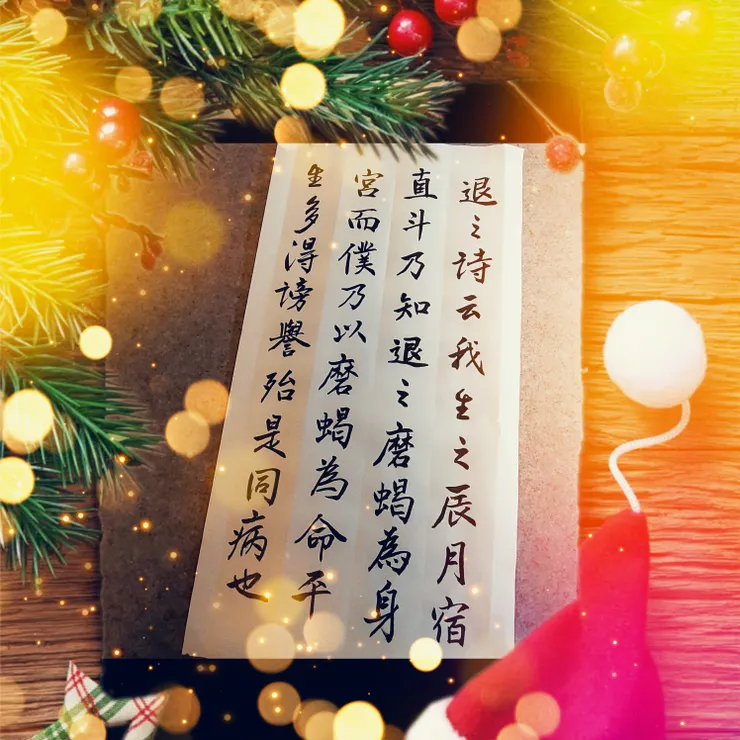 退之诗云我生之辰月宿
直斗乃知退之磨蝎為身
宮而僕乃以磨蝎為命平
生多得谤譽殆是同病也